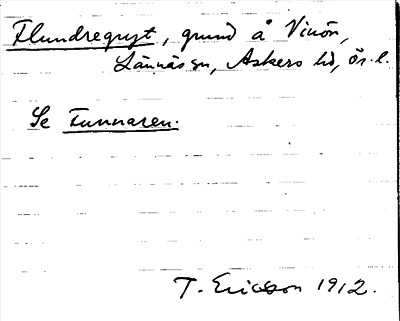 Flundregryt, grund å Vinön,
Lännäs sn, Askers hd, ör. l.
Se Tunnaren.
T. Ericsson 1912.